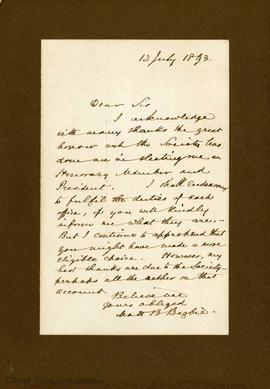 12 July 1893.
Dear Sir
I acknowledge
with many thanks the great
honour wh the Society has
done me in electing me an
Honorary Member and
President. I shall endeavour
to fulfil the duties of each
office, if you will kindly
inform me what they are.
But I continue to apprehend that
you might have made a more
eligible choice. However, my
best thanks are due to the Society -
perhaps all the rather on that
account.
Believe me
Yours obliged
Matt B Begbie.